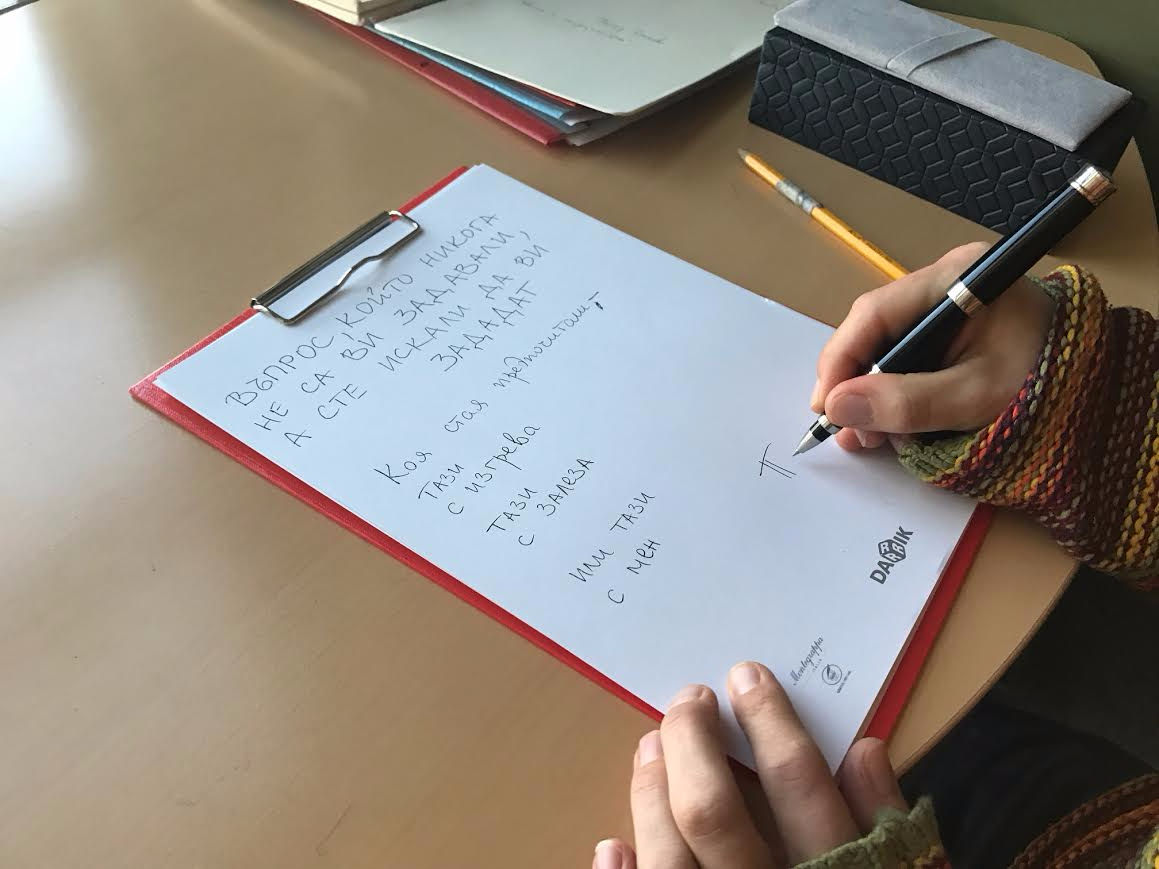 ВЪПРОС, КОЙТО НИКОГА
НЕ СА ВИ ЗАДАВАЛИ,
А СТЕ ИСКАЛИ ДА ВИ
ЗАДАДАТ
Коя стая предпочиташ,
тази
с изгрева
тази
с залеза
или тази
с мен
П
DARBIK
Montegrappa
ITALIA